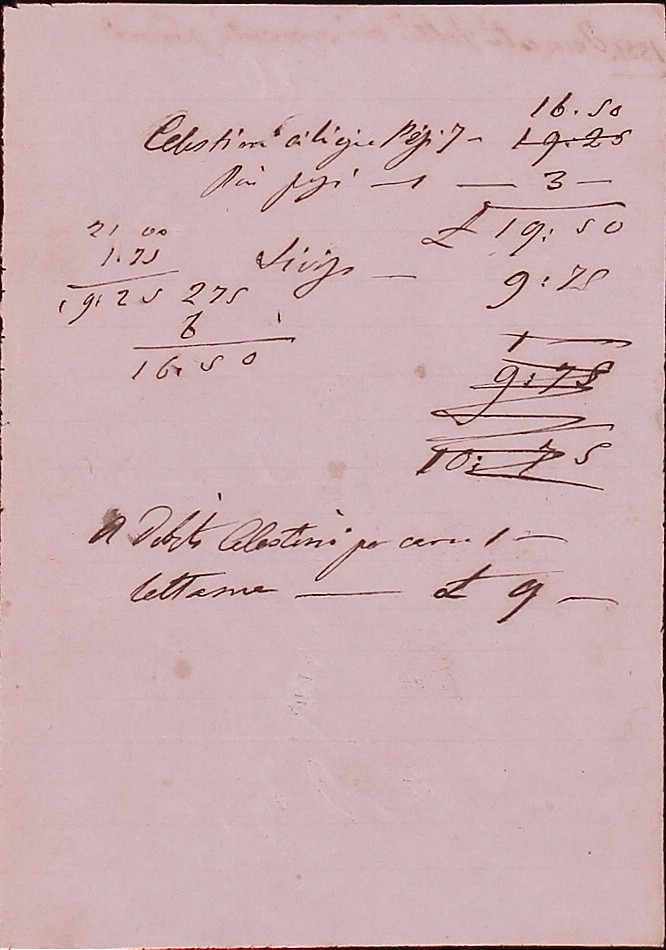 16.50
Celestini ciliegie Pesi 7 - 19.25
Più pesi — 1 — 3 —
£ 19:50
21 00
1.75
19:25 275
6
16.50
9:75
1 —
9:75
10:75
A Debito Celestini per carri 1 —
lettame — £ 9 —